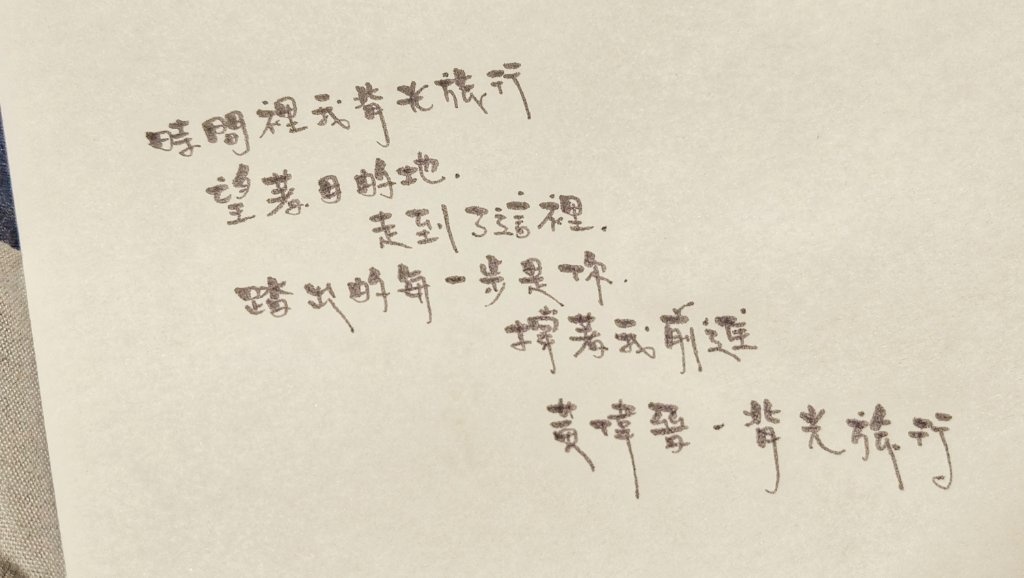 時間裡我背光旅行
望著目的地.
走到了這裡.
踏出的每一步是你.
撐著我前進
黃偉晉·背光旅行